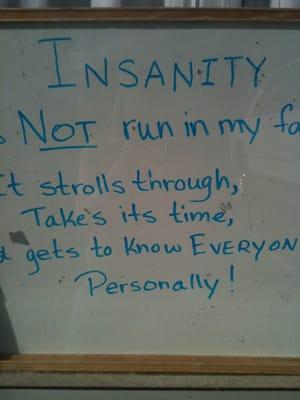 INSANITY
s NOT run in my fa
It strolls through,
Take's its time,
d gets to know EVERYON
Personally!